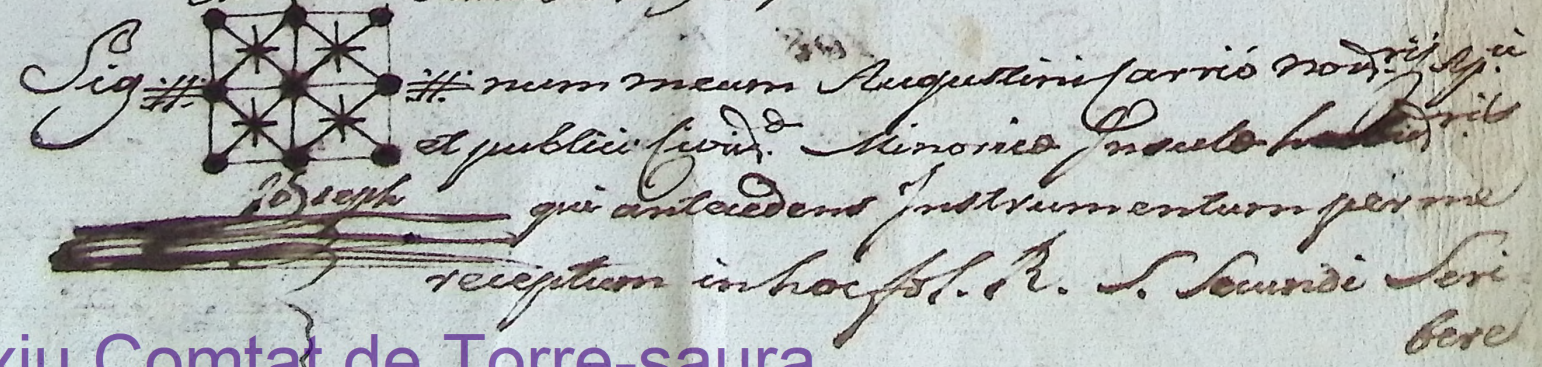 Sig # # num meum Augustini Carrió Not.rij Ap.ci
et publici Civit.d Minoricæ Insulæ
Joseph
qui antecedens Instrumentum per me
receptum in hoc fol. R. S. Secundi Scri
bere
xiu Comtat de Torre-saura